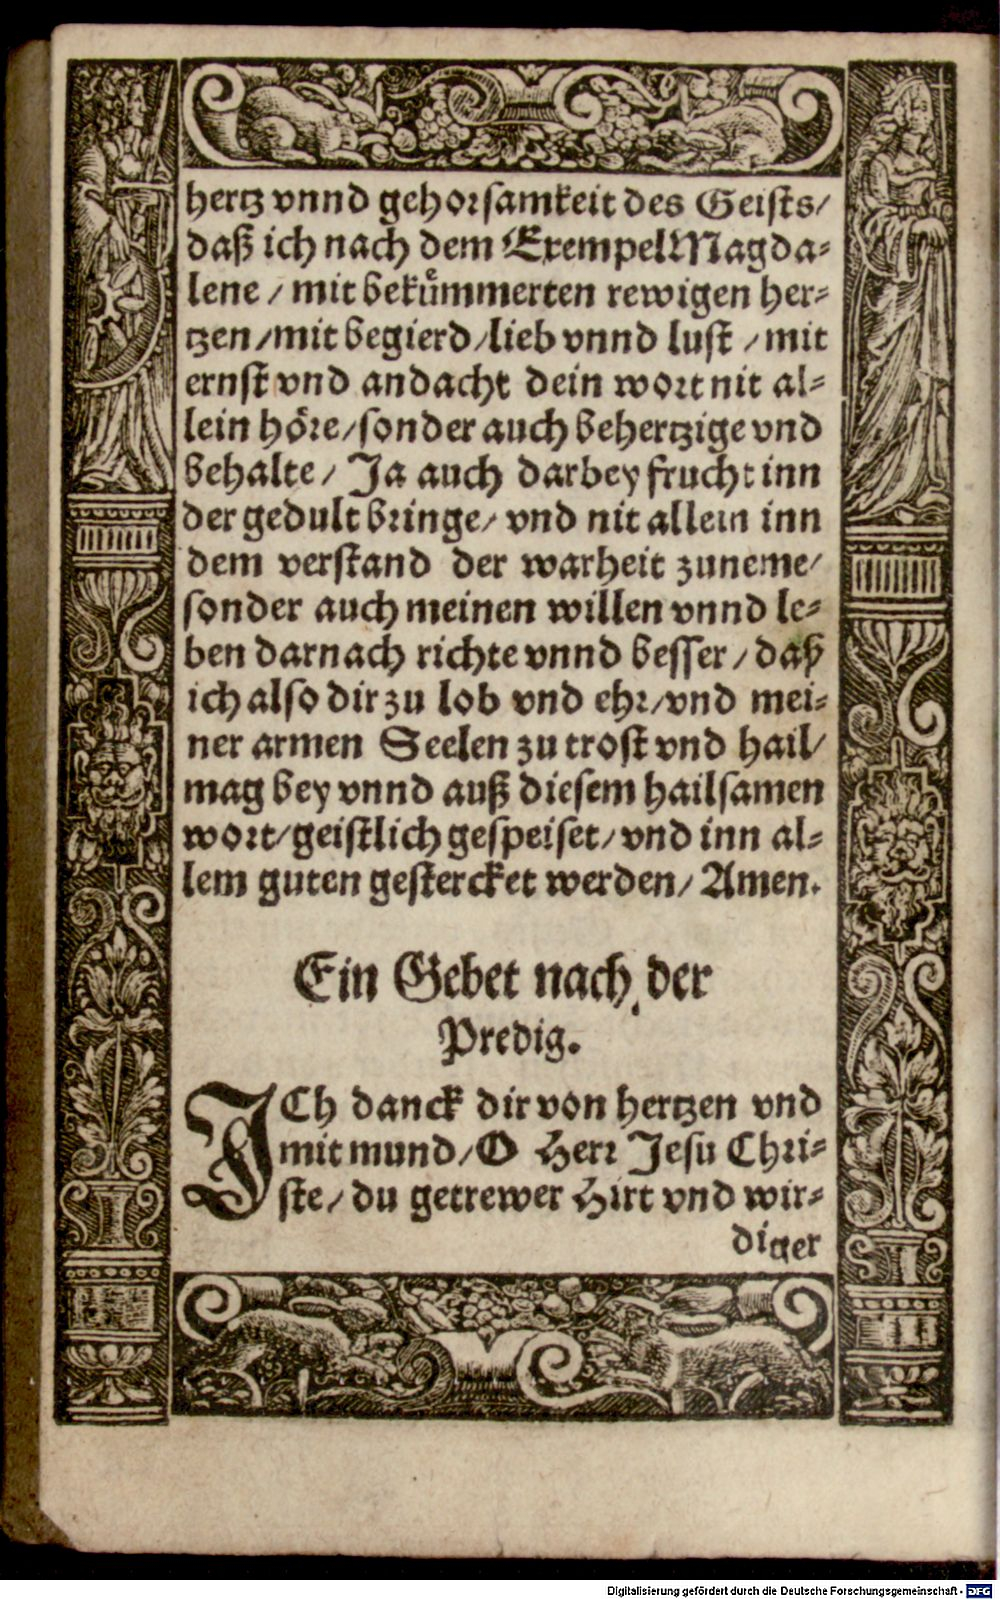 hertz vnnd gehorsamkeit des Geists/
daß ich nach dem Exempel Magda-
lene / mit bekuͤmmerten rewigen her-
tzen/mit begierd/lieb vnnd lust / mit
ernst vnd andacht dein wort nit al-
lein hoͤre/sonder auch behertzige vnd
behalte/ Ja auch darbey frucht inn
der gedult bringe/ vnd nit allein inn
dem verstand der warheit zuneme/
sonder auch meinen willen vnnd le-
ben darnach richte vnnd besser/ daß
ich also dir zu lob vnd ehr/vnd mei-
ner armen Seelen zu trost vnd hail/
mag bey vnnd auß diesem hailsamen
wort/geistlich gespeiset/vnd inn al-
lem guten gestercket werden/ Amen.
Ein Gebet nach der
Predig.
ICh danck dir von hertzen vnd
mit mund/O Herr Jesu Chri-
ste/ du getrewer Hirt vnd wir-
diger
Digitalisierung gefördert durch die Deutsche Forschungsgemeinschaft - DFG